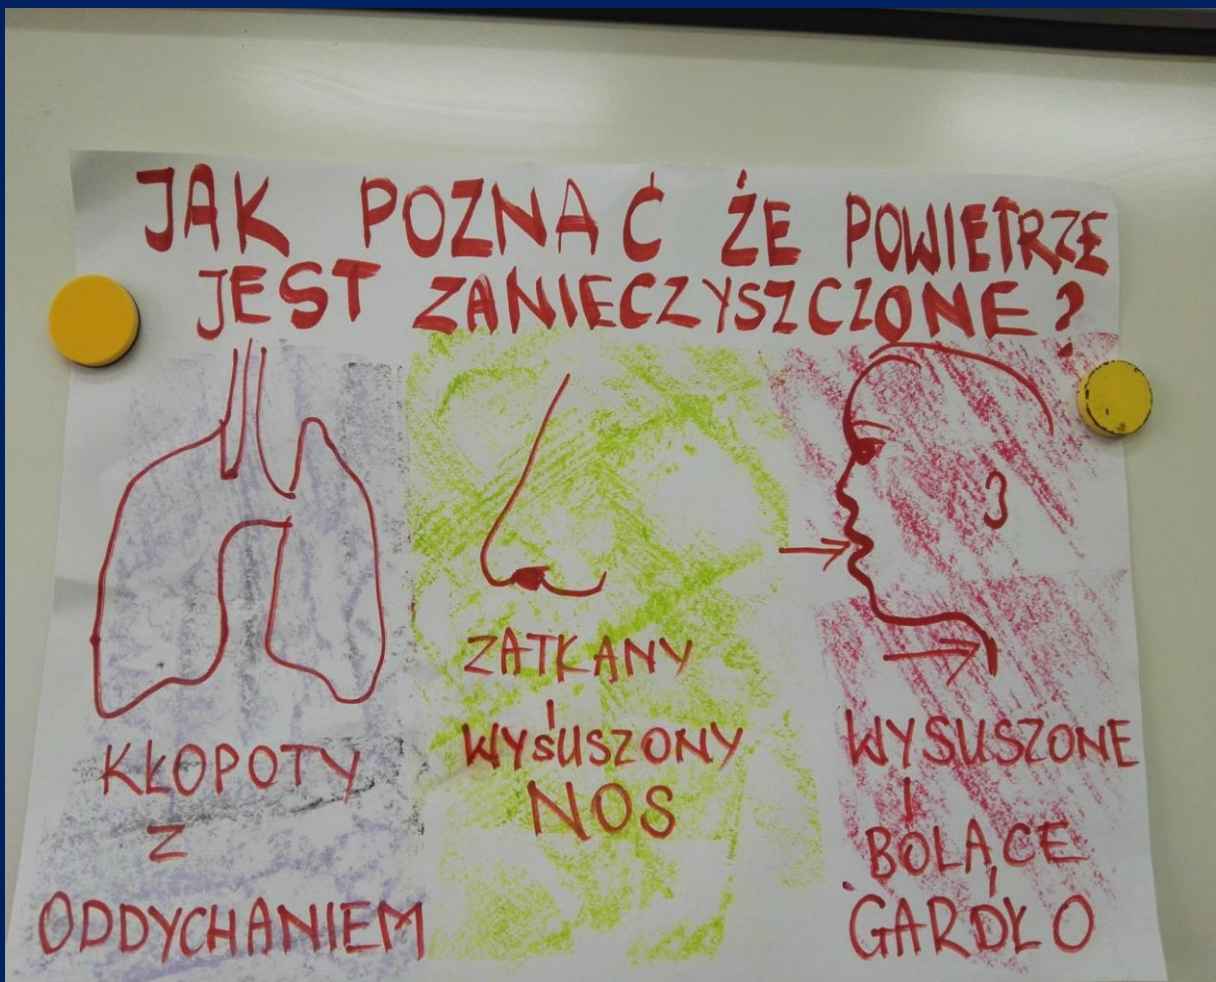 JAK POZNAĆ ŻE POWIETRZE
JEST ZANIECZYSZCZONE?
KŁOPOTY
Z
ODDYCHANIEM
ZATKANY
I
WYSUSZONY
NOS
WYSUSZONE
I
BOLĄCE
GARDŁO